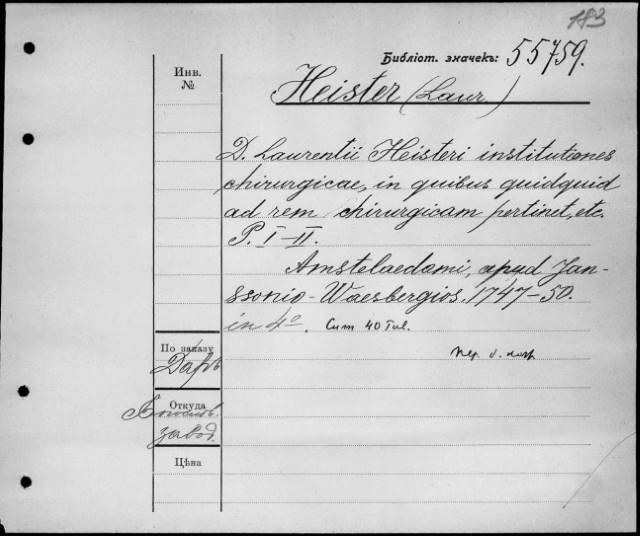 183
Библіот. значекъ: 55759.
Инв.
№
Heister (Laur.)
D. Laurentii Heisteri institutiones
chirurgicae, in quibus quidquid
ad rem chirurgicam pertinet, etc.
P. I-II.
Amstelaedami, apud Jan-
ssonio-Waesbergios. 1747-50.
in 4º. Cum 40 Tab.
По заказу
Даръ
Откуда
завод.
Цѣна